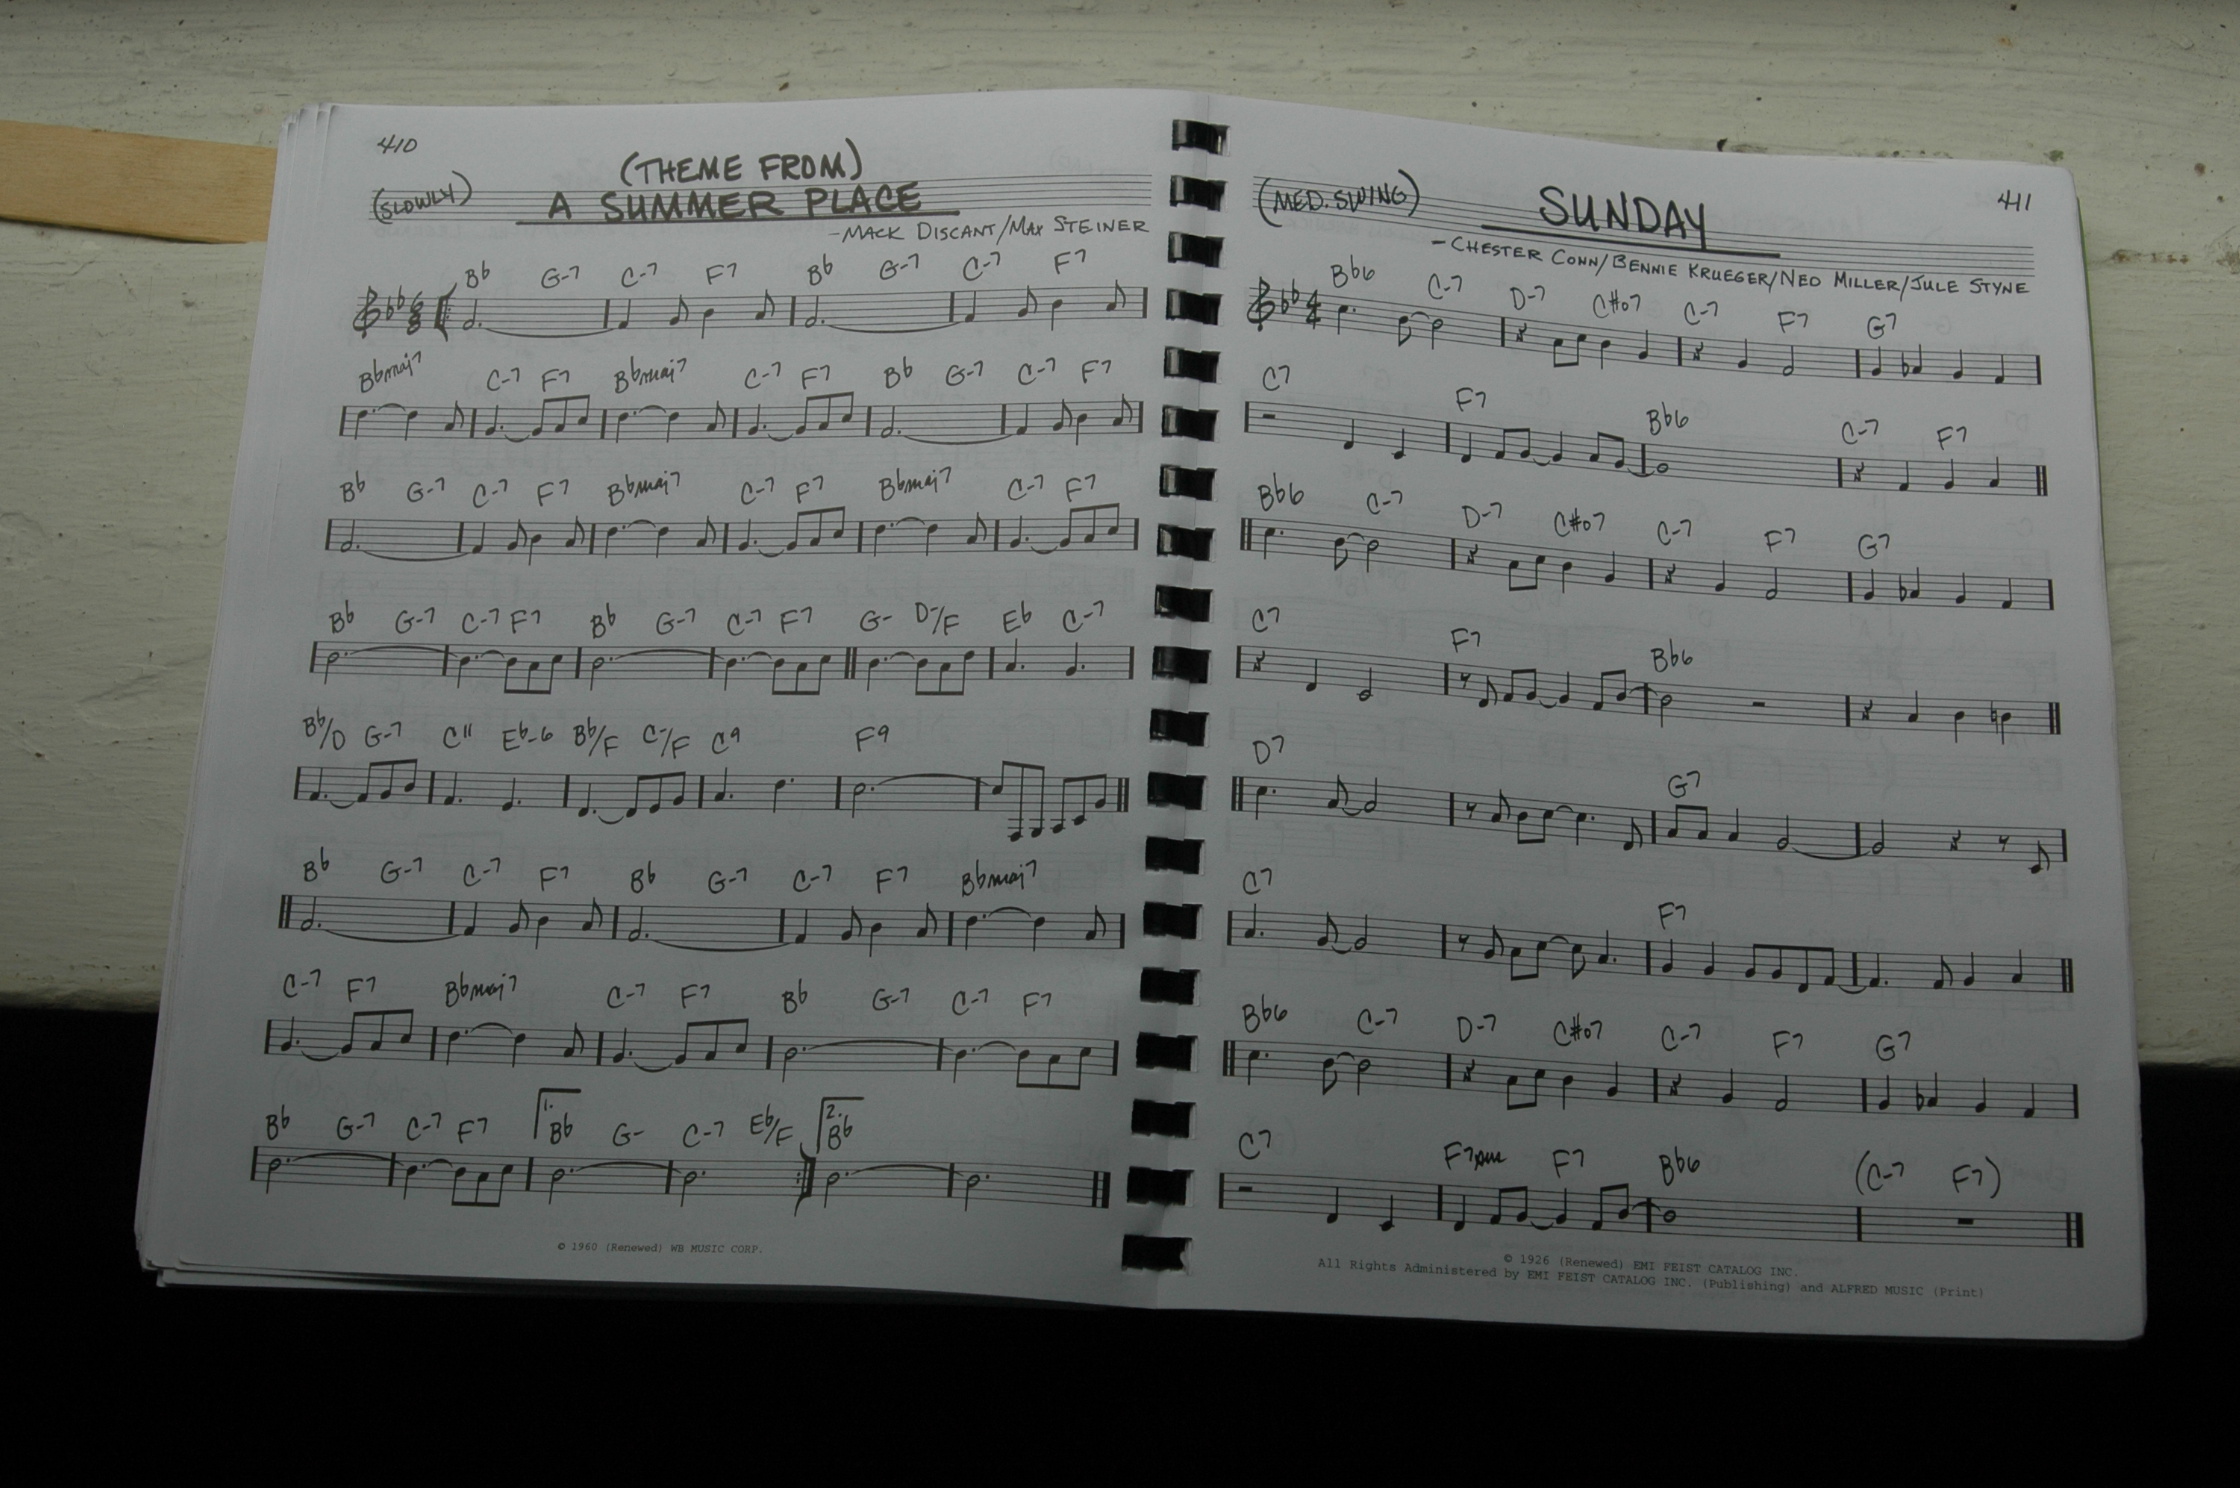 410
(THEME FROM)
(SLOWLY) A SUMMER PLACE
-MACK DISCANT/MAX STEINER
Bb G-7 C-7 F7 Bb G-7 C-7 F7
6
8
Bbmaj7 C-7 F7 Bbmaj7 C-7 F7 Bb G-7 C-7 F7
Bb G-7 C-7 F7 Bbmaj7 C-7 F7 Bbmaj7 C-7 F7
Bb G-7 C-7 F7 Bb G-7 C-7 F7 G- D-/F Eb C-7
Bb/D G-7 C11 Eb-6 Bb/F C-/F C9 F9
Bb G-7 C-7 F7 Bb G-7 C-7 F7 Bbmaj7
C-7 F7 Bbmaj7 C-7 F7 Bb G-7 C-7 F7
1. 2.
Bb G-7 C-7 F7 Bb G- C-7 Eb/F Bb
© 1960 (Renewed) WB MUSIC CORP.
411
(MED. SWING) SUNDAY
-CHESTER CONN/BENNIE KRUEGER/NED MILLER/JULE STYNE
Bb6 C-7 D-7 C#o7 C-7 F7 G7
4
4
C7 F7 Bb6 C-7 F7
Bb6 C-7 D-7 C#o7 C-7 F7 G7
C7 F7 Bb6
D7 G7
C7 F7
Bb6 C-7 D-7 C#o7 C-7 F7 G7
C7 F7sus F7 Bb6 (C-7 F7)
© 1926 (Renewed) EMI FEIST CATALOG INC.
All Rights Administered by EMI FEIST CATALOG INC. (Publishing) and ALFRED MUSIC (Print)